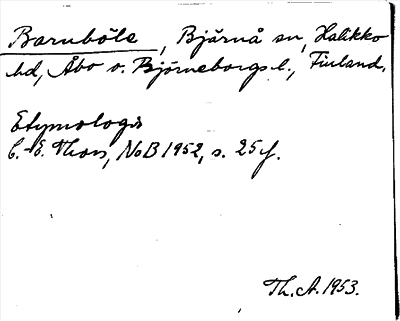 Barnböle, Bjärnå sn, Halikko
hd, Åbo o. Björneborgs l., Finland.
Etymologi
C.-E. Thors, NoB 1952, s. 25 f.
Th. A. 1953.